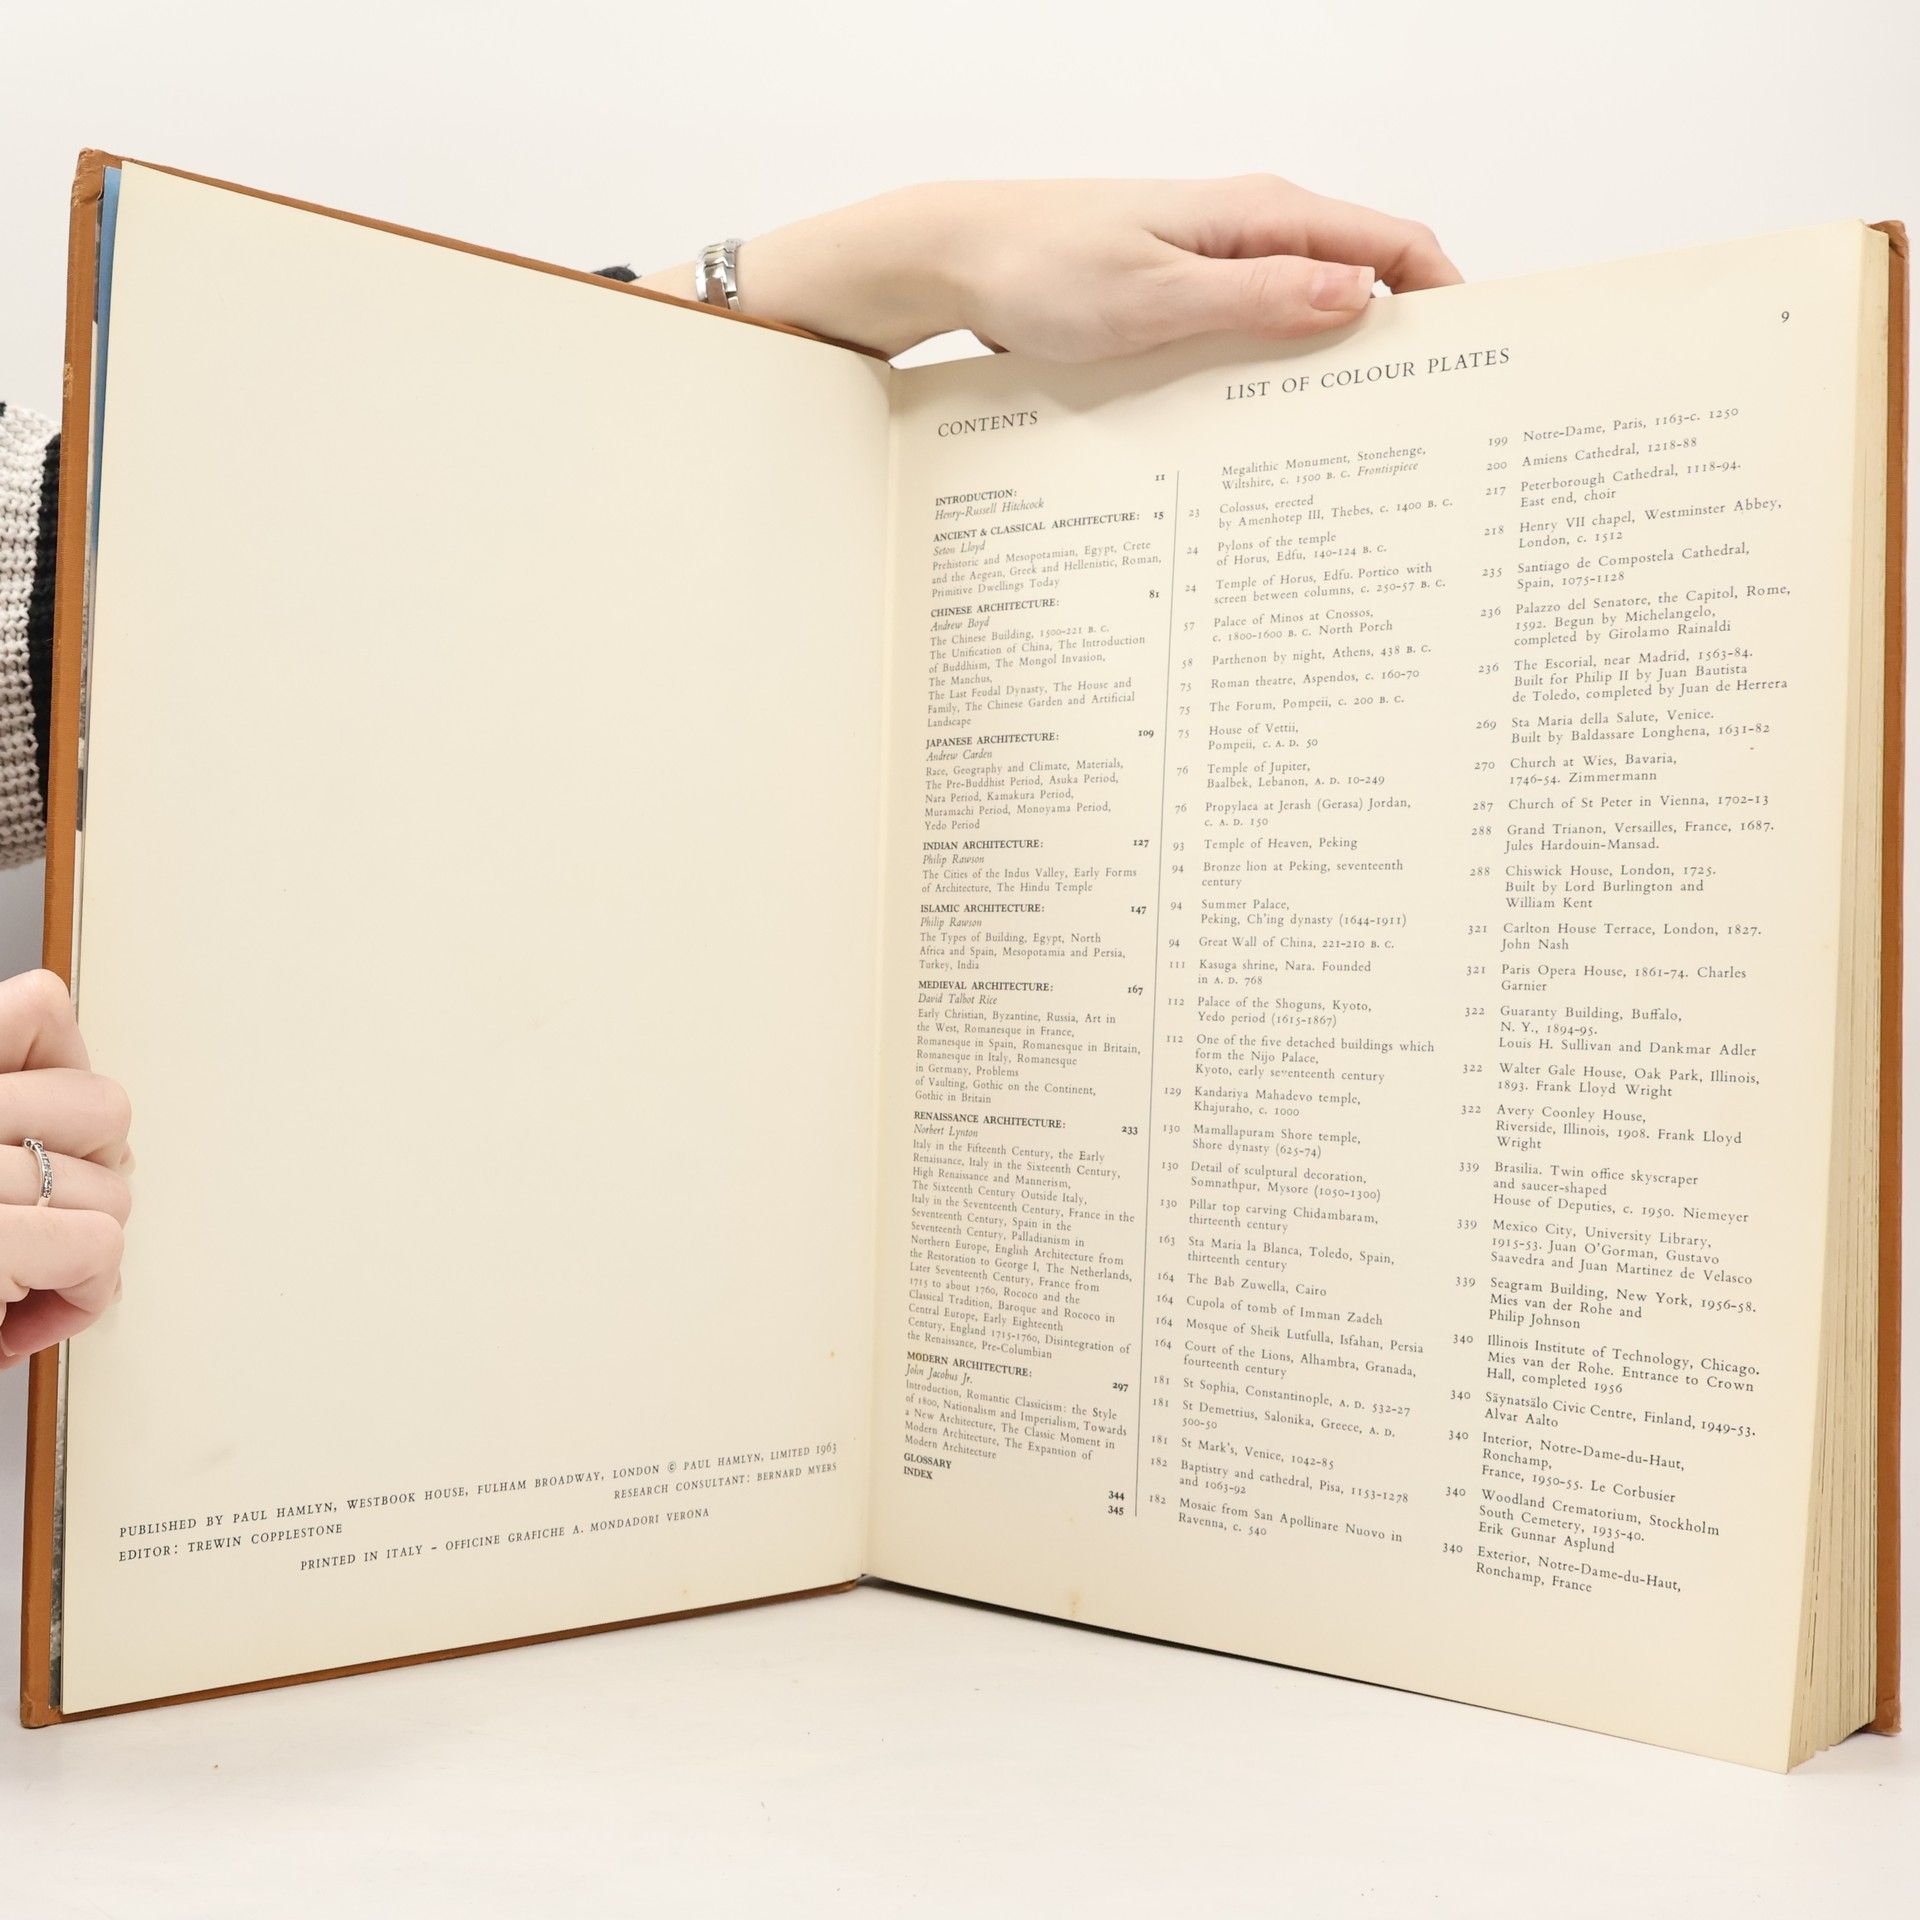 PUBLISHED BY PAUL HAMLYN, WESTBOOK HOUSE, FULHAM BROADWAY, LONDON © PAUL HAMLYN, LIMITED 1963
RESEARCH CONSULTANT: BERNARD MYERS
EDITOR: TREWIN COPPLESTONE
PRINTED IN ITALY – OFFICINE GRAFICHE A. MONDADORI VERONA
9
CONTENTS
INTRODUCTION: 11
Henry-Russell Hitchcock
ANCIENT & CLASSICAL ARCHITECTURE: 15
Seton Lloyd
Prehistoric and Mesopotamian, Egypt, Crete
and the Aegean, Greek and Hellenistic, Roman,
Primitive Dwellings Today
CHINESE ARCHITECTURE: 81
Andrew Boyd
The Chinese Building, 1500-221 B. C.
The Unification of China, The Introduction
of Buddhism, The Mongol Invasion,
The Manchus,
The Last Feudal Dynasty, The House and
Family, The Chinese Garden and Artificial
Landscape
JAPANESE ARCHITECTURE: 109
Andrew Carden
Race, Geography and Climate, Materials,
The Pre-Buddhist Period, Asuka Period,
Nara Period, Kamakura Period,
Muramachi Period, Monoyama Period,
Yedo Period
INDIAN ARCHITECTURE: 127
Philip Rawson
The Cities of the Indus Valley, Early Forms
of Architecture, The Hindu Temple
ISLAMIC ARCHITECTURE: 147
Philip Rawson
The Types of Building, Egypt, North
Africa and Spain, Mesopotamia and Persia,
Turkey, India
MEDIEVAL ARCHITECTURE: 167
David Talbot Rice
Early Christian, Byzantine, Russia, Art in
the West, Romanesque in France,
Romanesque in Spain, Romanesque in Britain,
Romanesque in Italy, Romanesque
in Germany, Problems
of Vaulting, Gothic on the Continent,
Gothic in Britain
RENAISSANCE ARCHITECTURE: 233
Norbert Lynton
Italy in the Fifteenth Century, the Early
Renaissance, Italy in the Sixteenth Century,
High Renaissance and Mannerism,
The Sixteenth Century Outside Italy,
Italy in the Seventeenth Century, France in the
Seventeenth Century, Spain in the
Seventeenth Century, Palladianism in
Northern Europe, English Architecture from
the Restoration to George I, The Netherlands,
Later Seventeenth Century, France from
1715 to about 1760, Rococo and the
Classical Tradition, Baroque and Rococo in
Central Europe, Early Eighteenth
Century, England 1715-1760, Disintegration of
the Renaissance, Pre-Columbian
MODERN ARCHITECTURE: 297
John Jacobus Jr.
Introduction, Romantic Classicism: the Style
of 1800, Nationalism and Imperialism, Towards
a New Architecture, The Classic Moment in
Modern Architecture, The Expansion of
Modern Architecture
GLOSSARY 344
INDEX 345
LIST OF COLOUR PLATES
Megalithic Monument, Stonehenge,
Wiltshire, c. 1500 B. C. Frontispiece
23 Colossus, erected
by Amenhotep III, Thebes, c. 1400 B. C.
24 Pylons of the temple
of Horus, Edfu, 140-124 B. C.
24 Temple of Horus, Edfu. Portico with
screen between columns, c. 250-57 B. C.
57 Palace of Minos at Cnossos,
c. 1800-1600 B. C. North Porch
58 Parthenon by night, Athens, 438 B. C.
75 Roman theatre, Aspendos, c. 160-70
75 The Forum, Pompeii, c. 200 B. C.
75 House of Vettii,
Pompeii, c. A. D. 50
76 Temple of Jupiter,
Baalbek, Lebanon, A. D. 10-249
76 Propylaea at Jerash (Gerasa) Jordan,
c. A. D. 150
93 Temple of Heaven, Peking
94 Bronze lion at Peking, seventeenth
century
94 Summer Palace,
Peking, Ch'ing dynasty (1644-1911)
94 Great Wall of China, 221-210 B. C.
111 Kasuga shrine, Nara. Founded
in A. D. 768
112 Palace of the Shoguns, Kyoto,
Yedo period (1615-1867)
112 One of the five detached buildings which
form the Nijo Palace,
Kyoto, early seventeenth century
129 Kandariya Mahadevo temple,
Khajuraho, c. 1000
130 Mamallapuram Shore temple,
Shore dynasty (625-74)
130 Detail of sculptural decoration,
Somnathpur, Mysore (1050-1300)
130 Pillar top carving Chidambaram,
thirteenth century
163 Sta Maria la Blanca, Toledo, Spain,
thirteenth century
164 The Bab Zuwella, Cairo
164 Cupola of tomb of Imman Zadeh
164 Mosque of Sheik Lutfulla, Isfahan, Persia
164 Court of the Lions, Alhambra, Granada,
fourteenth century
181 St Sophia, Constantinople, A. D. 532-27
181 St Demetrius, Salonika, Greece, A. D.
500-50
181 St Mark's, Venice, 1042-85
182 Baptistry and cathedral, Pisa, 1153-1278
and 1063-92
182 Mosaic from San Apollinare Nuovo in
Ravenna, c. 540
199 Notre-Dame, Paris, 1163-c. 1250
200 Amiens Cathedral, 1218-88
217 Peterborough Cathedral, 1118-94.
East end, choir
218 Henry VII chapel, Westminster Abbey,
London, c. 1512
235 Santiago de Compostela Cathedral,
Spain, 1075-1128
236 Palazzo del Senatore, the Capitol, Rome,
1592. Begun by Michelangelo,
completed by Girolamo Rainaldi
236 The Escorial, near Madrid, 1563-84.
Built for Philip II by Juan Bautista
de Toledo, completed by Juan de Herrera
269 Sta Maria della Salute, Venice.
Built by Baldassare Longhena, 1631-82
270 Church at Wies, Bavaria,
1746-54. Zimmermann
287 Church of St Peter in Vienna, 1702-13
288 Grand Trianon, Versailles, France, 1687.
Jules Hardouin-Mansad.
288 Chiswick House, London, 1725.
Built by Lord Burlington and
William Kent
321 Carlton House Terrace, London, 1827.
John Nash
321 Paris Opera House, 1861-74. Charles
Garnier
322 Guaranty Building, Buffalo,
N. Y., 1894-95.
Louis H. Sullivan and Dankmar Adler
322 Walter Gale House, Oak Park, Illinois,
1893. Frank Lloyd Wright
322 Avery Coonley House,
Riverside, Illinois, 1908. Frank Lloyd
Wright
339 Brasilia. Twin office skyscraper
and saucer-shaped
House of Deputies, c. 1950. Niemeyer
339 Mexico City, University Library,
1915-53. Juan O'Gorman, Gustavo
Saavedra and Juan Martinez de Velasco
339 Seagram Building, New York, 1956-58.
Mies van der Rohe and
Philip Johnson
340 Illinois Institute of Technology, Chicago.
Mies van der Rohe. Entrance to Crown
Hall, completed 1956
340 Säynatsälo Civic Centre, Finland, 1949-53.
Alvar Aalto
340 Interior, Notre-Dame-du-Haut,
Ronchamp,
France, 1950-55. Le Corbusier
340 Woodland Crematorium, Stockholm
South Cemetery, 1935-40.
Erik Gunnar Asplund
340 Exterior, Notre-Dame-du-Haut,
Ronchamp, France